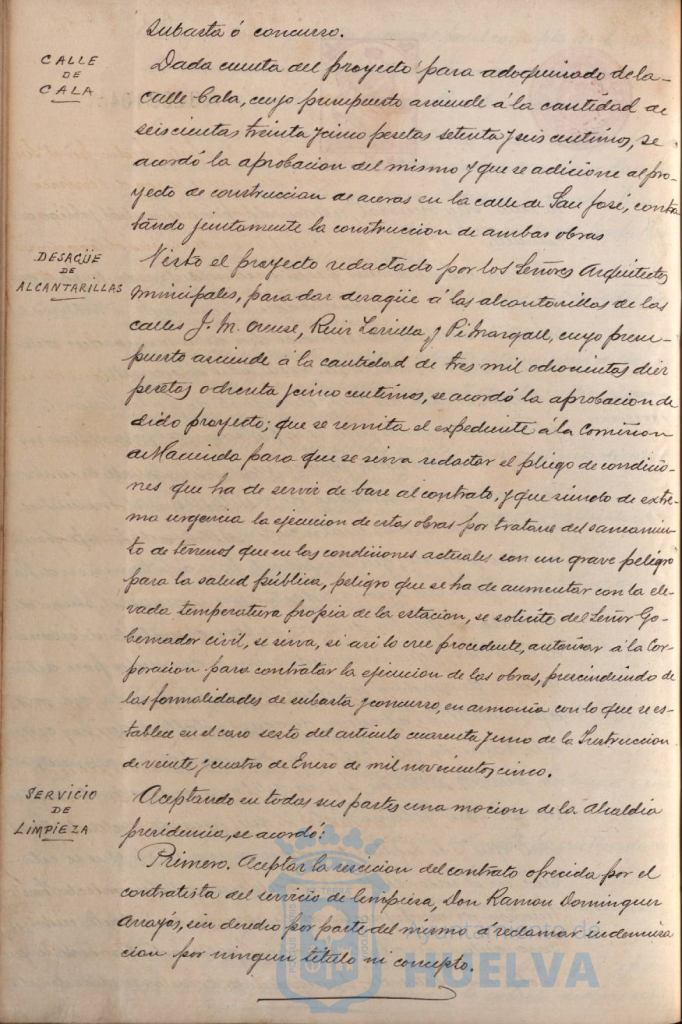 subasta ó concurso.
CALLE
DE
CALA
Dada cuenta del proyecto para adoquinado de la
calle Cala, cuyo presupuesto asciende á la cantidad de
seiscientas treinta y cinco pesetas setenta y seis centimos, se
acordó la aprobacion del mismo y que se adicione al pro-
yecto de construccion de aceras en la calle de San José, contra
tando juntamente la construccion de ambas obras
DESAGÜE
DE
ALCANTARILLAS
Visto el proyecto redactado por los Señores Arquitectos
municipales, para dar desagüe á las alcantarillas de las
calles J. M. Orense, Ruiz Zorrilla y Pi Margall, cuyo presu-
puesto asciende á la cantidad de tres mil ochocientas diez
pesetas ochenta y cinco centimos, se acordó la aprobacion de
dicho proyecto; que se remita el expediente á la Comision
de Hacienda para que se sirva redactar el pliego de condicio-
nes que ha de servir de base al contrato, y que siendo de extre-
ma urgencia la ejecucion de estas obras por tratarse del saneamien-
to de terrenos que en las condiciones actuales son un grave peligro
para la salud pública, peligro que se ha de aumentar con la ele-
vada temperatura propia de la estacion, se solicite del Señor Go-
bernador civil, se sirva, si asi lo cree procedente, autorisar á la Cor-
poracion para contratar la ejecucion de las obras, prescindiendo de
las formalidades de subasta y concurso, en armonía con lo que se es-
tablece en el caso sesto del articulo cuarenta y uno de la Instruccion
de veinte y cuatro de Enero de mil novecientos cinco.
SERVICIO
DE
LIMPIEZA
Aceptando en todas sus partes una mocion de la Alcaldia
presidencia, se acordó:
Primero. Aceptar la rescicion del contrato ofrecida por el
contratista del servicio de limpiesa, Don Ramon Dominguez
Arrayás, sin derecho por parte del mismo á reclamar indemniza
cion por ningun titulo ni concepto.
Ayuntamiento de
HUELVA